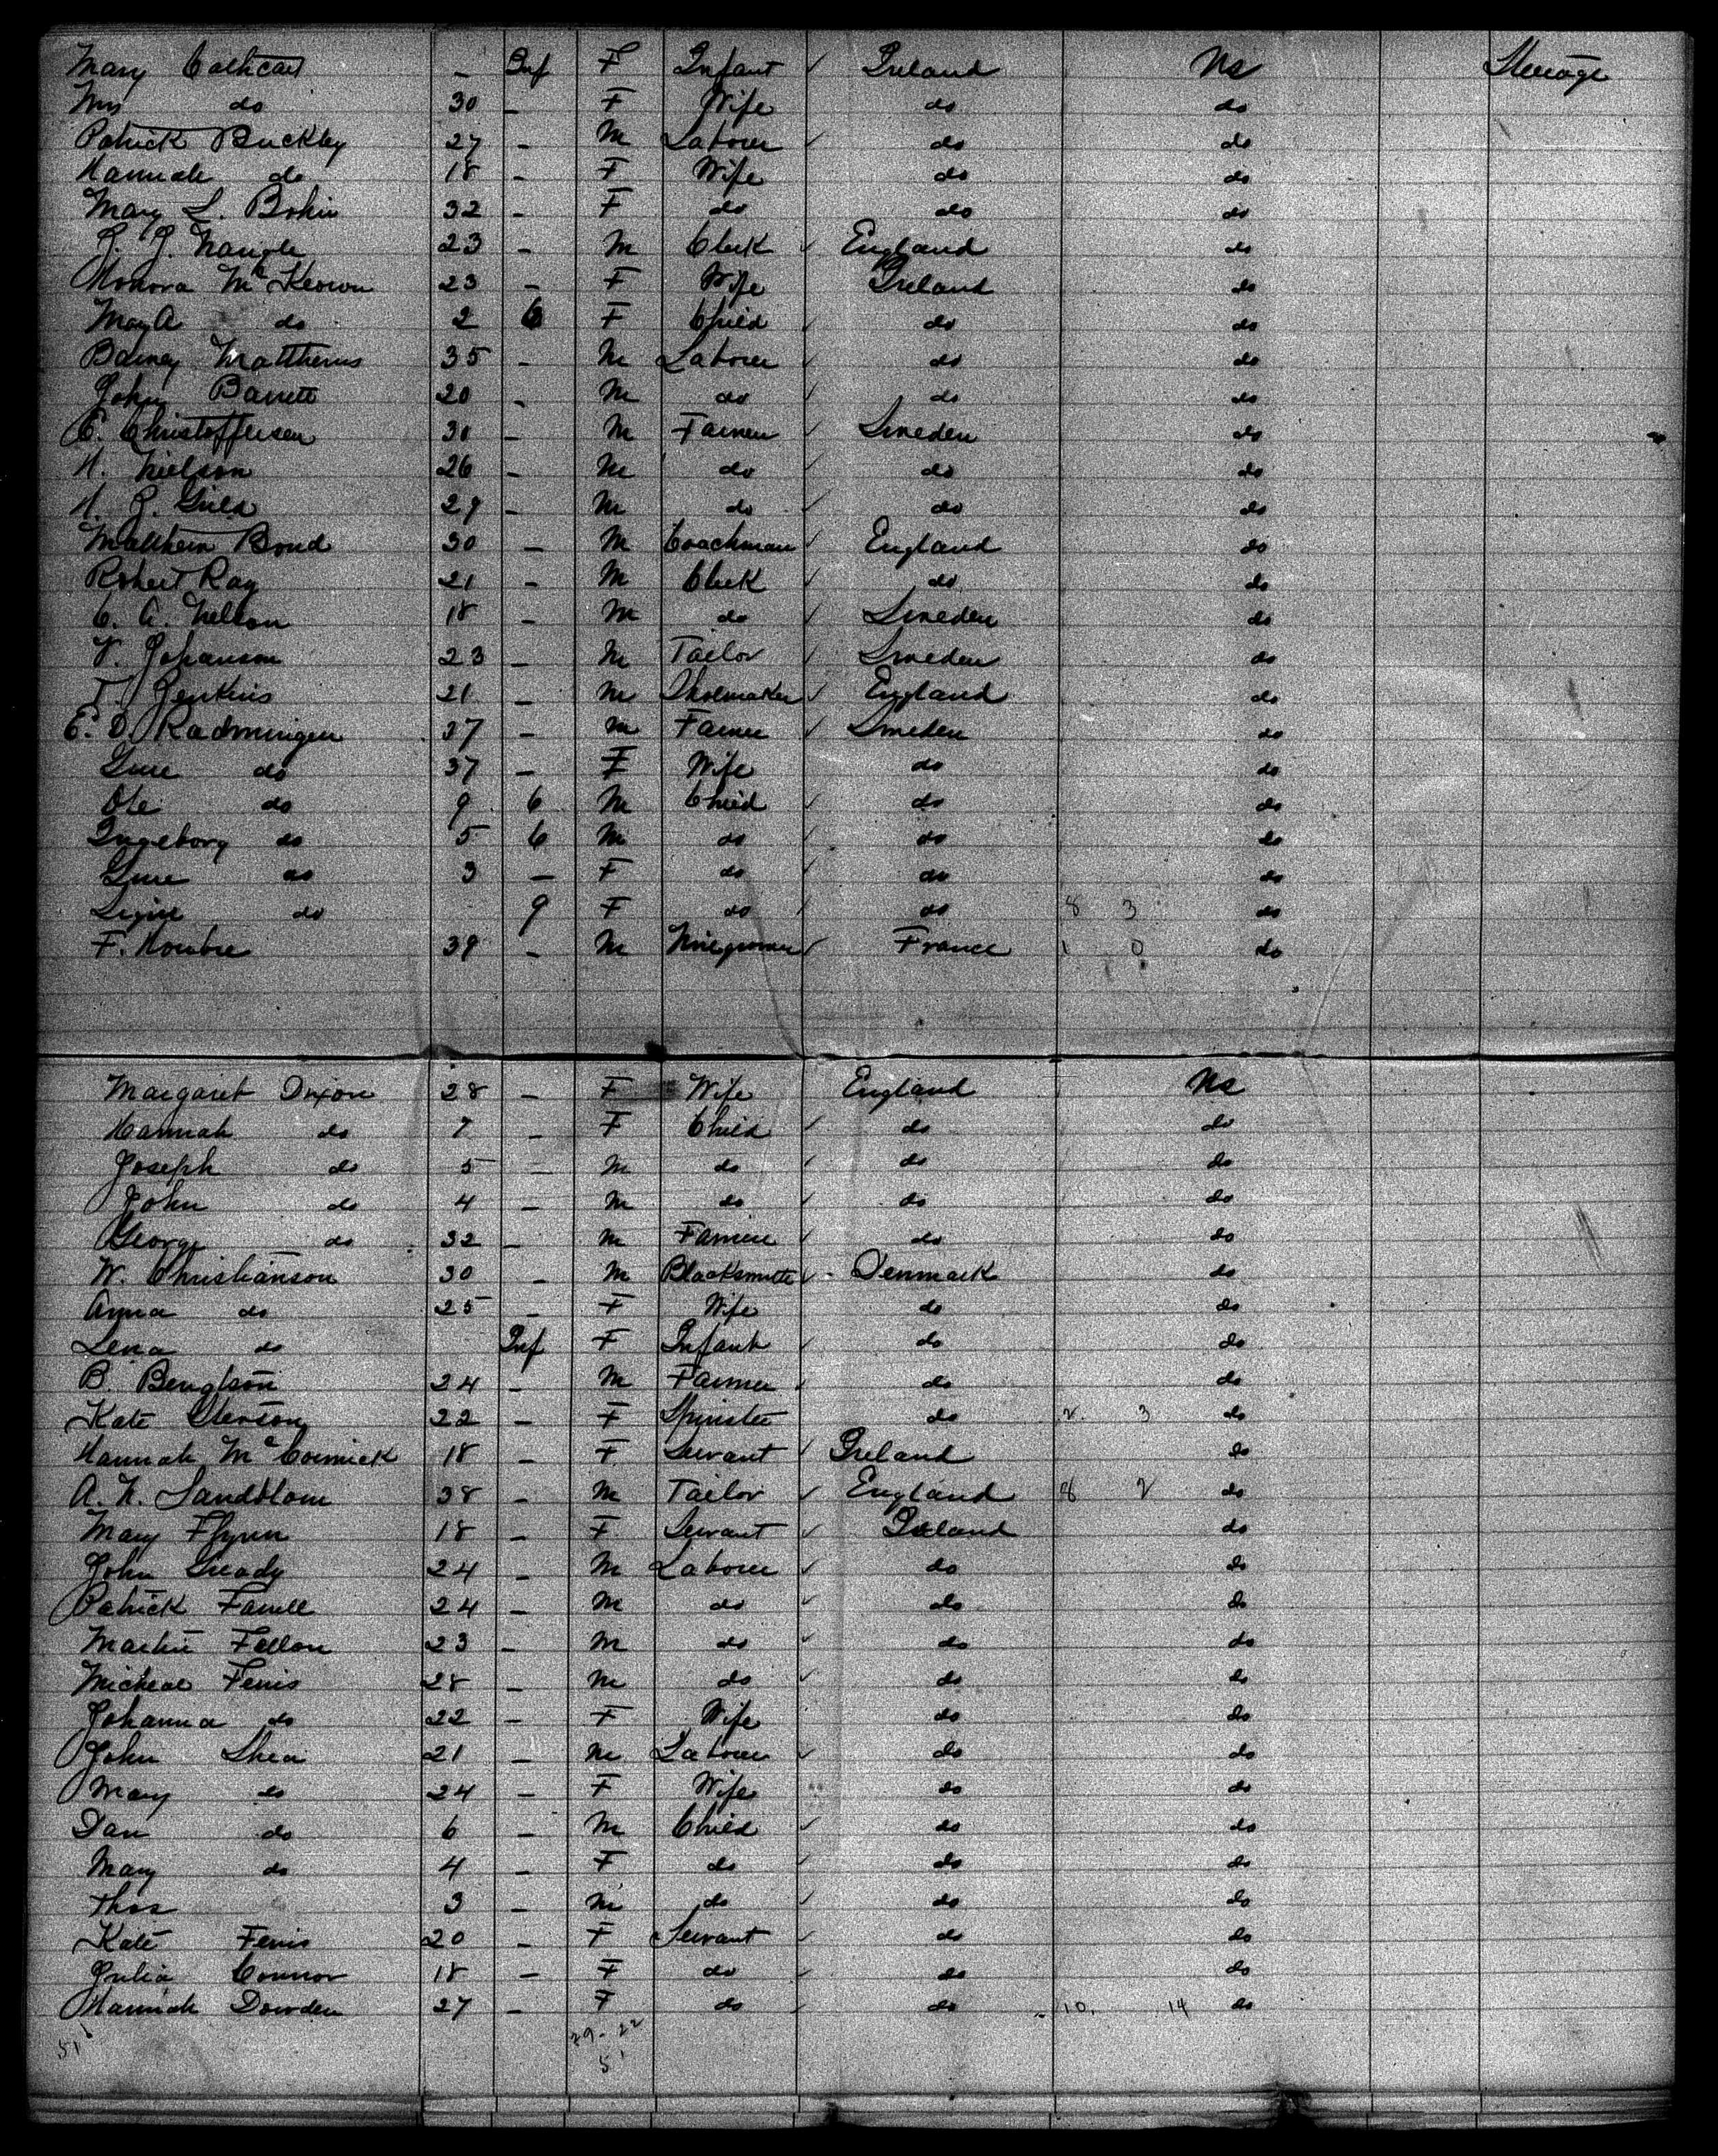 Mary Cathcart - Inf F Infant ✓ Ireland NS Steerage
Mrs do 30 - F Wife do do
Patrick Buckley 27 - M Laborer ✓ do do
Hannah do 18 - F Wife do do
Mary L. 32 - F do do do
J. J. Nangle 23 - M Clerk ✓ England do
Honora McKeown 23 - F Wife Ireland do
May A do 2 6 F Child ✓ do do
Barney Matthews 35 - M Laborer ✓ do do
John Barrett 20 - M do ✓ do do
C. Christoffersen 30 - M Farmer ✓ Sweden do
N. Nielson 26 - M do ✓ do do
29 - M do ✓ do do
Matthew Bond 30 - M Coachman ✓ England do
Robert Ray 21 - M Clerk ✓ do do
C. A. Nelson 18 - M do ✓ Sweden do
V. Johanson 23 - M Tailor ✓ Sweden do
T. Jenkins 21 - M Shoemaker ✓ England do
E. D. 37 - M Farmer ✓ Sweden do
do 37 - F Wife do do
Ole do 9 6 M Child ✓ do do
Ingeborg do 5 6 M do ✓ do do
do 3 - F do ✓ do do
do 9 F do ✓ do 8 3 do
F. 39 - M ✓ France 1 0 do
Margaret Dixon 28 - F Wife England NS
Hannah do 7 - F Child ✓ do do
Joseph do 5 - M do ✓ do do
John do 4 - M do ✓ do do
George do 32 - M Farmer ✓ do do
W. Christianson 30 - M Blacksmith ✓ Denmark do
Anna do 25 - F Wife do do
Lena do Inf F Infant ✓ do do
B. Bengtson 24 - M Farmer ✓ do do
Kate 22 - F Spinster do 2 3 do
Hannah McCormick 18 - F Servant ✓ Ireland do
A. N. Sandblom 38 - M Tailor ✓ England 8 2 do
Mary Flynn 18 - F Servant ✓ Ireland do
John 24 - M Laborer ✓ do do
Patrick Farrell 24 - M do ✓ do do
Martin Fallon 23 - M do ✓ do do
Micheal Ferris 28 - M do ✓ do do
Johanna do 22 - F Wife do do
John Shea 21 - M Laborer ✓ do do
Mary do 24 - F Wife do do
Dan do 6 - M Child ✓ do do
Mary do 4 - F do ✓ do do
Thos 3 - M do ✓ do do
Kate Ferris 20 - F Servant ✓ do do
Julia Connor 18 - F do ✓ do do
Hannah Dowden 27 - F do ✓ do 10 14 do
51 29-22
51